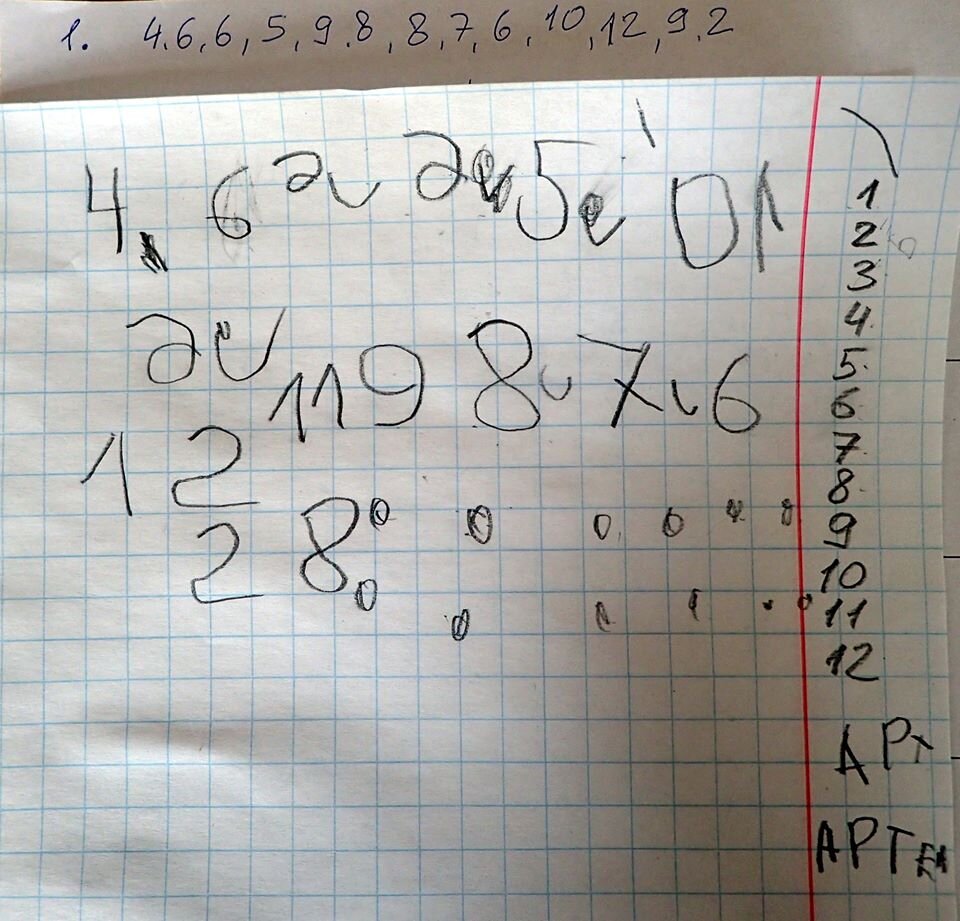 1. 4.6,6,5,9.8,8,7,6,10,12,9.2
4. 6 5 01
119 8 7 6
12
2 8
1
2
3
4
5
6
7
8
9
10
11
12
АРТ
АРТЕ